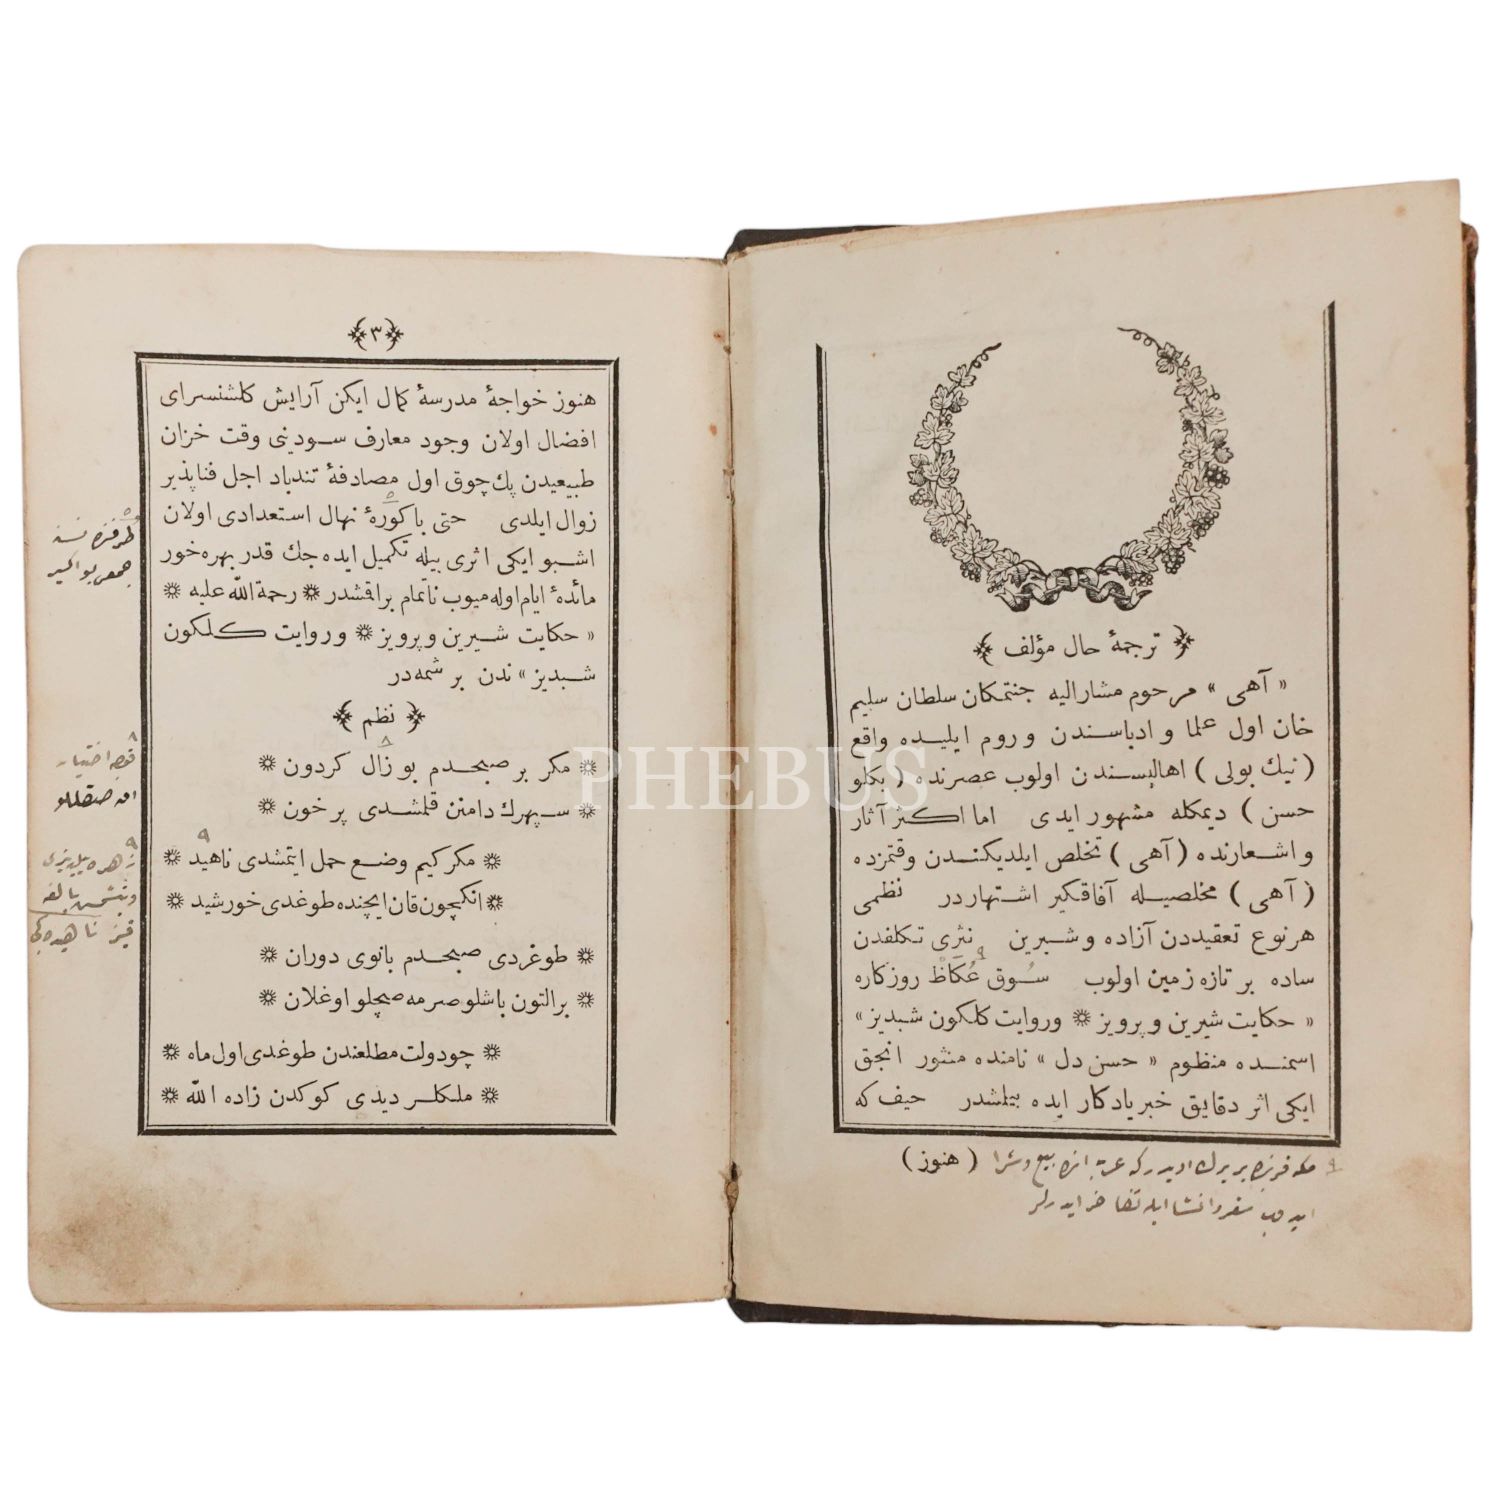 ترجمهٔ حال مؤلف
« آهی » مرحوم مشارالیه جنتمکان سلطان سلیم
خان اول علما و ادباسندن و روم ایلیده واقع
( نیك بولی ) اهالیسندن اولوب عصرنده ( بكلو
حسن ) دیمکله مشهور ایدی اما اکثر آثار
و اشعارنده ( آهی ) تخلص ایلدیکندن وقتمزده
( آهی ) مخلصیله آفاقکیر اشتهاردر نظمی
هرنوع تعقیددن آزاده و شیرین نثری تکلفدن
ساده بر تازه زمین اولوب سُوق عُکاظ روزکاره
« حکایت شیرین و پرویز ❊ و روایت کلکون شبدیز »
اسمنده منظوم « حسن دل » نامنده منثور انجق
ایکی اثر دقایق خبر یادکار ایده بیلمشدر حیف که
( هنوز )
٣
هنوز خواجهٔ مدرسهٔ کمال ایکن آرایش کلشنسرای
افضال اولان وجود معارف سودنی وقت خزان
طبیعیدن پك چوق اول مصادفهٔ تندباد اجل فناپذیر
زوال ایلدی حتی باکورهٔ نهال استعدادی اولان
اشبو ایکی اثری بیله تکمیل ایده جك قدر بهره خور
مائدهٔ ایام اوله میوب ناتمام براقشدر ❊ رحمة الله علیه ❊
« حکایت شیرین و پرویز ❊ و روایت کلکون
شبدیز » ندن بر شمه در
نظم
❊ مکر بر صبحدم بو زال کردون ❊
❊ سپهرك دامنن قلمشدی پر خون ❊
❊ مکر کیم وضع حمل ایتمشدی ناهید ❊
❊ انکیچون قان ایچنده طوغدی خورشید ❊
❊ طوغردی صبحدم بانوی دوران ❊
❊ بر التون باشلو صرمه صچلو اوغلان ❊
❊ چو دولت مطلعندن طوغدی اول ماه ❊
❊ ملکلر دیدی کوکدن زاده الله ❊
PHEBUS